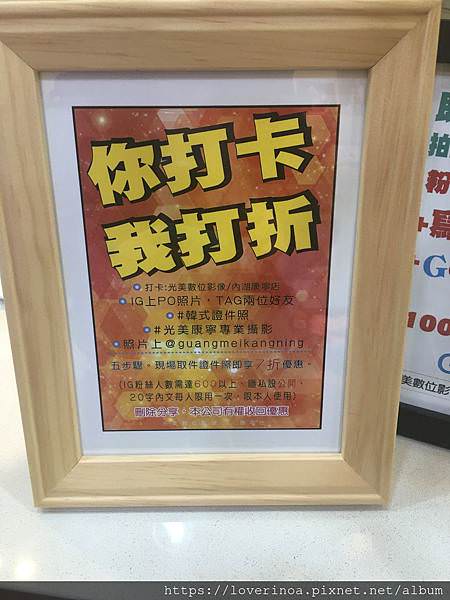 你打卡
我打折
打卡:光美數位影像/內湖康寧店
IG上PO照片，TAG兩位好友
#韓式證件照
#光美康寧專業攝影
照片上@guangmeikangning
五步驟。現場取件證件照即享／折優惠。
(IG粉絲人數需達600以上、隱私設公開、
20字內文每人限用一次，限本人使用)
刪除分享，本公司有權收回優惠
拍
粉
+寫
+G
100
G
美數位影
https://loverinoa.pixnet.net/album